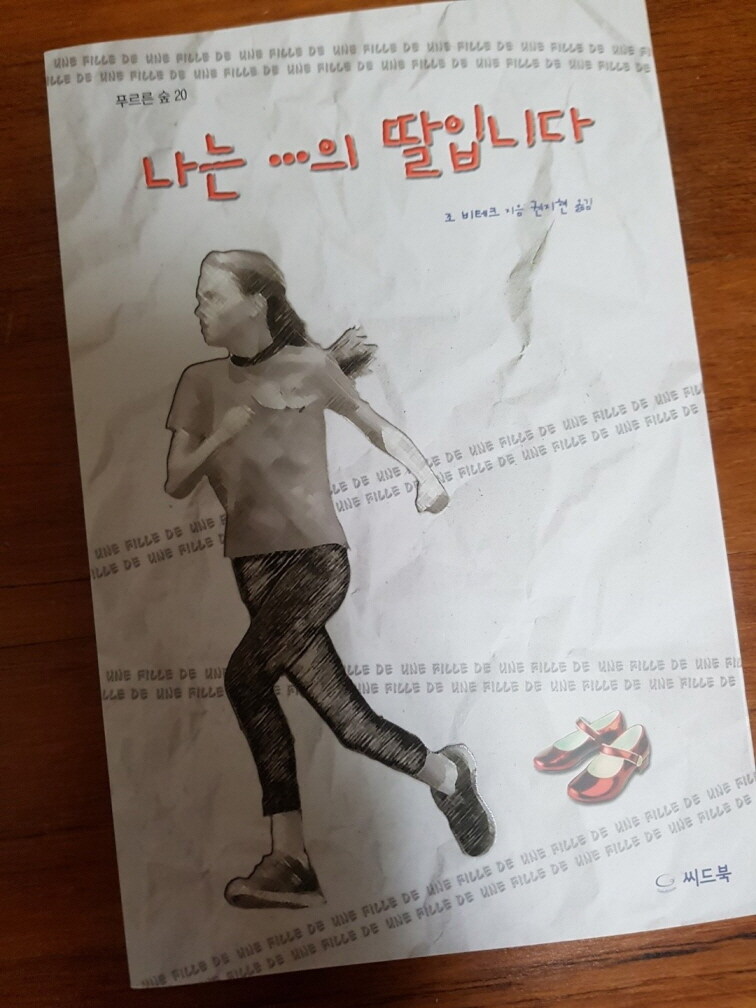 UNE FILLE DE UNE FILLE DE UNE FILLE DE UNE FILLE DE UNE FILLE DE UNE FILLE DE UNE FI
LLE DE UNE FILLE DE UNE FILLE DE UNE FILLE DE UNE FILLE DE UNE FILLE DE UNE FILLE DE
푸르른 숲 20
나는 ...의 딸입니다
조 비테크 지음 권지현 옮김
LE DE UNE FILLE DE UNE FILLE DE UNE FIL
UNE FILLE DE UNE FILLE DE UNE FILLE DE
UNE FILLE DE UNE FI
ILLE DE UNE FILLE D
UNE FILLE DE UN
LLE DE UNE FILLE DE UNE FILLE DE UNE FILLE DE UNE FIL
LLE DE UNE FILLE
FILLE DE UNE FILLE DE UNE FILLE DE UNE FILLE DE
UNE FILLE DE UNE FILLE DE UNE FILLE DE UNE FILLE DE UNE FILLE DE UNE FILLE DE UNE FI
UNE FILLE DE UNE FILLE DE UNE FILLE DE UNE FILLE DE UNE FILLE DE UNE FILLE DE
씨드북